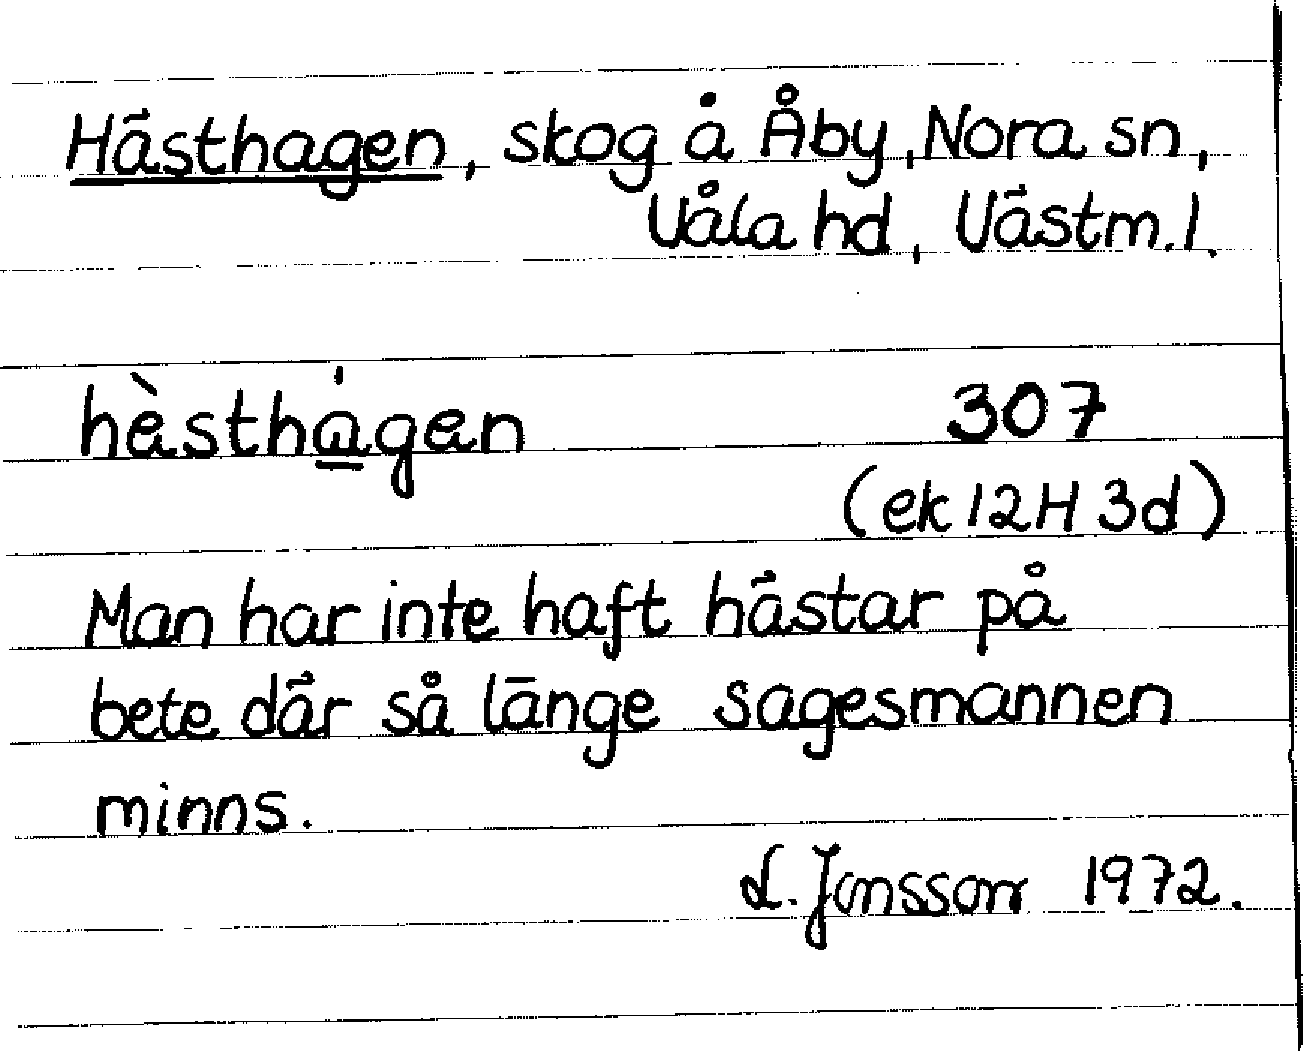 Hästhagen, skog å Åby, Nora sn,
Våla hd, Västm.l.
hèsthá̱gen 307
(ek 12H 3d)
Man har inte haft hästar på
bete där så länge sagesmannen
minns.
L. Jonsson 1972.